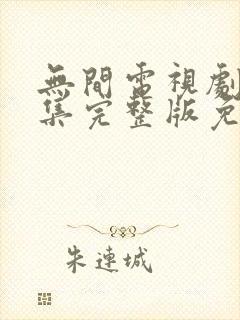 無間電視劇
集完整版免
朱連城